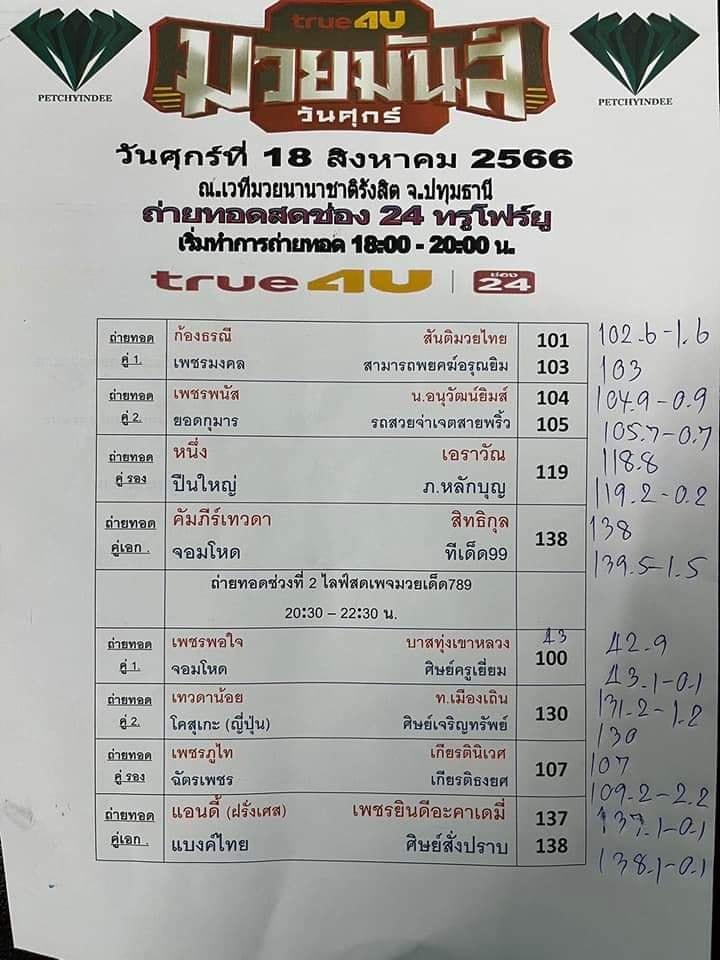 true4U
มวยมันส์
วันศุกร์
PETCHYINDEE
PETCHYINDEE
วันศุกร์ที่ 18 สิงหาคม 2566
ณ.เวทีมวยนานาชาติรังสิต จ.ปทุมธานี
ถ่ายทอดสดช่อง 24 ทรูโฟร์ยู
เริ่มทำการถ่ายทอด 18:00 - 20:00 น.
true4U ช่อง 24
ถ่ายทอด ก้องธรณี สันติมวยไทย 101 102.6-1.6
คู่ 1. เพชรมงคล สามารถพยคฆ์อรุณยิม 103 103
ถ่ายทอด เพชรพนัส น.อนุวัฒน์ยิมส์ 104 104.9-0.9
คู่ 2. ยอดกุมาร รถสวยจ่าเจตสายพริ้ว 105 105.7-0.7
ถ่ายทอด หนึ่ง เอราวัณ 118.8
คู่ รอง ปืนใหญ่ ภ.หลักบุญ 119 119.2-0.2
ถ่ายทอด คัมภีร์เทวดา สิทธิกุล 138
คู่เอก . จอมโหด ทีเด็ด99 138 139.5-1.5
ถ่ายทอดช่วงที่ 2 ไลฟ์สดเพจมวยเด็ด789
20:30 – 22:30 น.
ถ่ายทอด เพชรพอใจ บาสทุ่งเขาหลวง 43 42.9
คู่ 1. จอมโหด ศิษย์ครูเยี่ยม 100 43.1-0.1
ถ่ายทอด เทวดาน้อย ท.เมืองเถิน 131.2-1.2
คู่ 2. โคสุเกะ (ญี่ปุ่น) ศิษย์เจริญทรัพย์ 130 130
ถ่ายทอด เพชรภูไท เกียรตินิเวศ 107
คู่ รอง ฉัตรเพชร เกียรติธงยศ 107 109.2-2.2
ถ่ายทอด แอนดี้ (ฝรั่งเศส) เพชรยินดีอะคาเดมี่ 137 137.1-0.1
คู่เอก . แบงค์ไทย ศิษย์สั่งปราบ 138 138.1-0.1